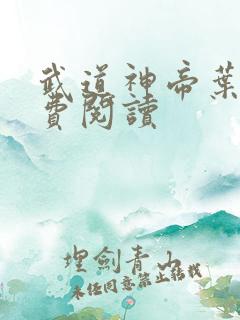 武道神帝葉
費閱讀
埋劍青山
未经同意禁止转载